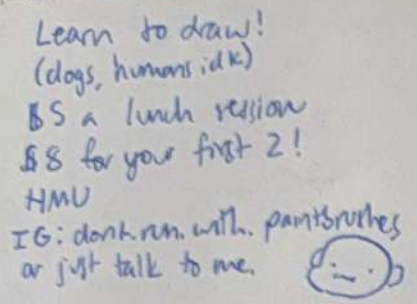 Learn to draw!
(dogs, humans, idk)
$5 a lunch session
$8 for your first 2!
HMU
IG: dont.run.with.paintbrushes
or just talk to me.